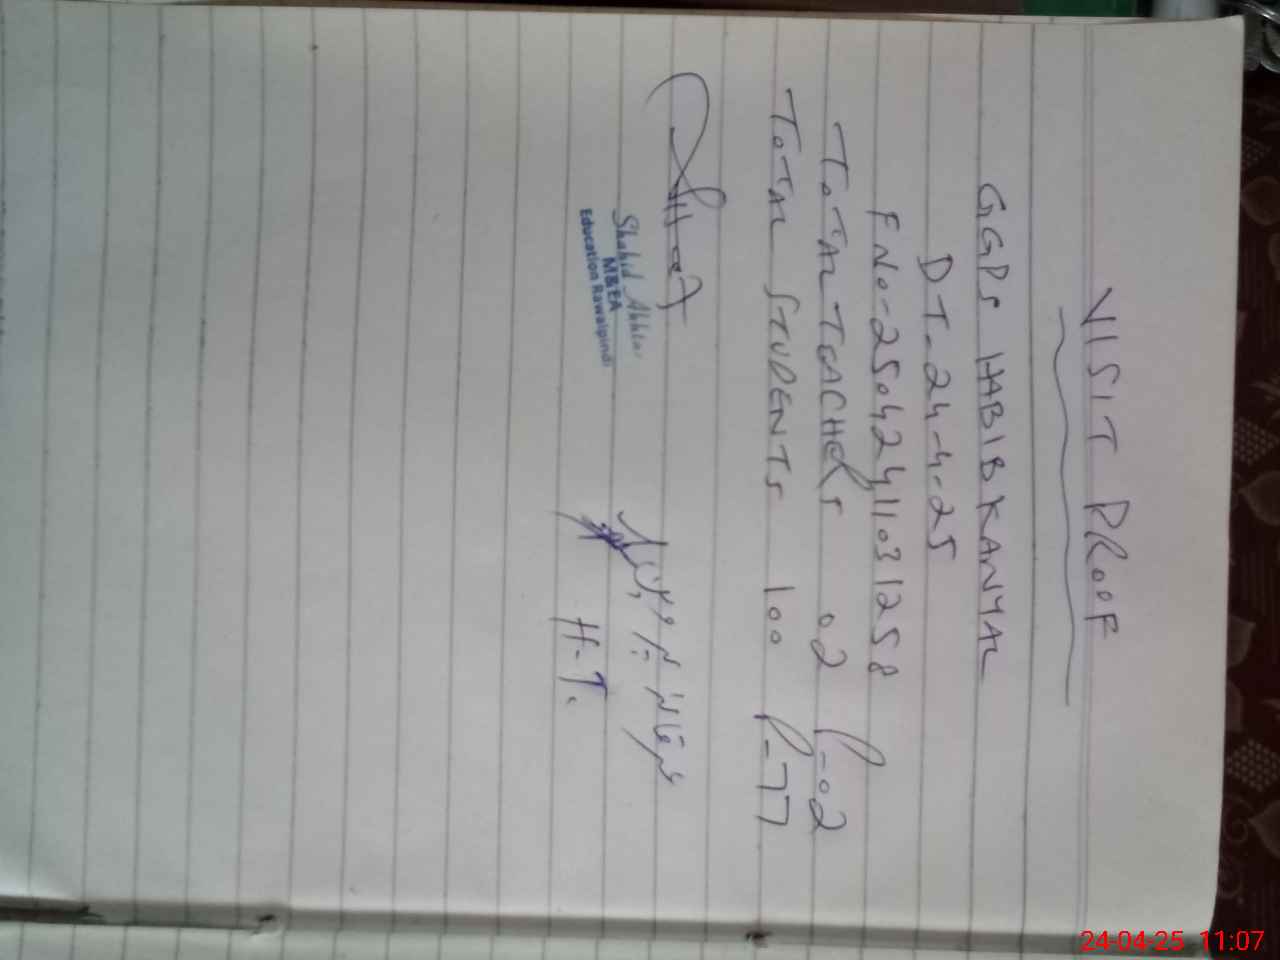 VISIT PROOF
GGPS HABIB KANYAL
DT-24-4-25
F No-25042411031258
TOTAL TEACHERS 02 P-02
TOTAL STUDENTS 100 P-77
Shahid Akhtar
M&EA
Education Rawalpindi
H.T.
24-04-25 11:07